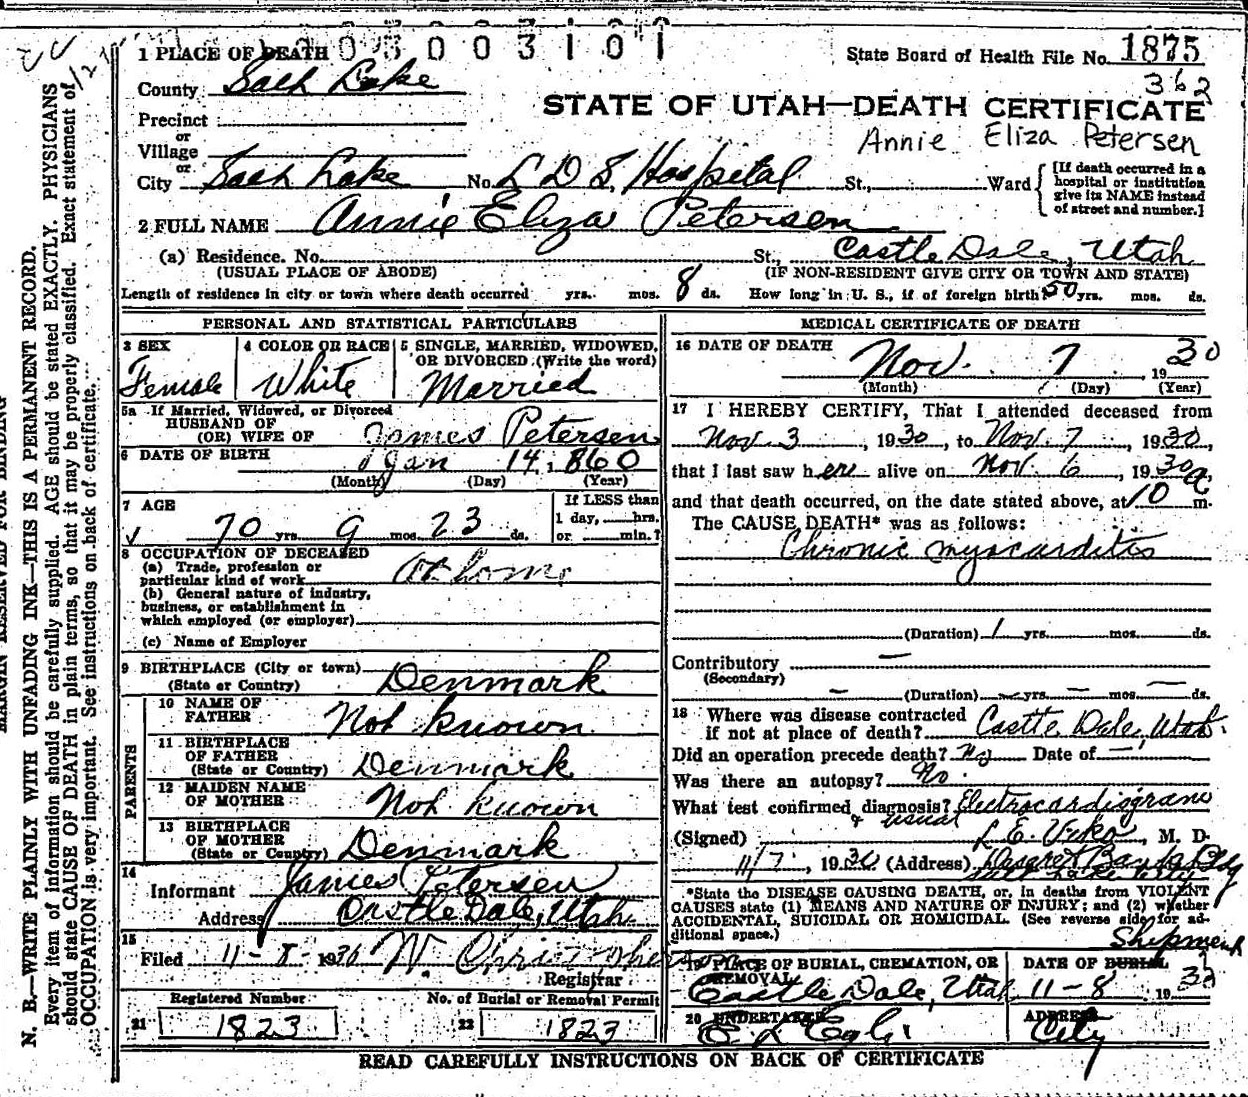 1 PLACE OF DEATH
State Board of Health File No. 1875
362
County Salt Lake
STATE OF UTAH—DEATH CERTIFICATE
Precinct
or
Annie Eliza Petersen
Village
or
City Salt Lake No. L D S, Hospital St., Ward
[If death occurred in a hospital or institution give its NAME instead of street and number.]
2 FULL NAME Annie Eliza Petersen
(a) Residence. No. St., Castle Dale, Utah
(USUAL PLACE OF ABODE) (IF NON-RESIDENT GIVE CITY OR TOWN AND STATE)
Length of residence in city or town where death occurred yrs. mos. 8 ds. How long in U. S., if of foreign birth? 50 yrs. mos. ds.
PERSONAL AND STATISTICAL PARTICULARS
3 SEX
Female
4 COLOR OR RACE
White
5 SINGLE, MARRIED, WIDOWED, OR DIVORCED (Write the word)
Married
5a If Married, Widowed, or Divorced
HUSBAND OF
(OR) WIFE OF James Petersen
6 DATE OF BIRTH Jan 14, 1860
(Month) (Day) (Year)
7 AGE
70 yrs. 9 mos. 23 ds.
If LESS than
1 day, hrs.
or min.?
8 OCCUPATION OF DECEASED
(a) Trade, profession or
particular kind of work At home
(b) General nature of industry,
business, or establishment in
which employed (or employer)
(c) Name of Employer
9 BIRTHPLACE (City or town)
(State or Country) Denmark
PARENTS
10 NAME OF
FATHER Not known
11 BIRTHPLACE
OF FATHER
(State or Country) Denmark
12 MAIDEN NAME
OF MOTHER Not known
13 BIRTHPLACE
OF MOTHER
(State or Country) Denmark
14
Informant James Petersen
Address Castle Dale, Utah
15
Filed 11-8-1930 W. Christopherson
Registrar
Registered Number
21 1823
No. of Burial or Removal Permit
22 1823
MEDICAL CERTIFICATE OF DEATH
16 DATE OF DEATH
Nov. 7, 1930
(Month) (Day) (Year)
17 I HEREBY CERTIFY, That I attended deceased from
Nov. 3, 1930, to Nov. 7, 1930,
that I last saw her alive on Nov. 6, 1930,
and that death occurred, on the date stated above, at 10 a m.
The CAUSE DEATH* was as follows:
Chronic myocarditis
(Duration) 1 yrs. mos. ds.
Contributory —
(Secondary)
— (Duration) — yrs. — mos. — ds.
18 Where was disease contracted
if not at place of death? Castle Dale, Utah.
Did an operation precede death? No Date of —
Was there an autopsy? No.
What test confirmed diagnosis? Electrocardiogram
& usual
(Signed) L. E. Viko, M. D.
11/7, 1930 (Address) Deseret Bank Bldg
Salt Lake City
*State the DISEASE CAUSING DEATH, or, in deaths from VIOLENT
CAUSES state (1) MEANS AND NATURE OF INJURY; and (2) whether
ACCIDENTAL, SUICIDAL OR HOMICIDAL. (See reverse side for additional space.)
Shipment
19 PLACE OF BURIAL, CREMATION, OR REMOVAL
Castle Dale, Utah
DATE OF BURIAL
11-8 1930
20 UNDERTAKER
ADDRESS
City
READ CAREFULLY INSTRUCTIONS ON BACK OF CERTIFICATE
MARGIN RESERVED FOR BINDING
N. B.—WRITE PLAINLY WITH UNFADING INK—THIS IS A PERMANENT RECORD.
Every item of information should be carefully supplied. AGE should be stated EXACTLY. PHYSICIANS
should state CAUSE OF DEATH in plain terms, so that it may be properly classified. Exact statement of
OCCUPATION is very important. See instructions on back of certificate.